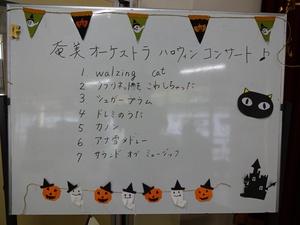 奄美オーケストラ ハロウィンコンサート♪
1 walzing cat
2 クラリネットをこわしちゃった
3 シュガープラム
4 ドレミのうた
5 カノン
6 アナ雪メドレー
7 サウンド オブ ミュージック